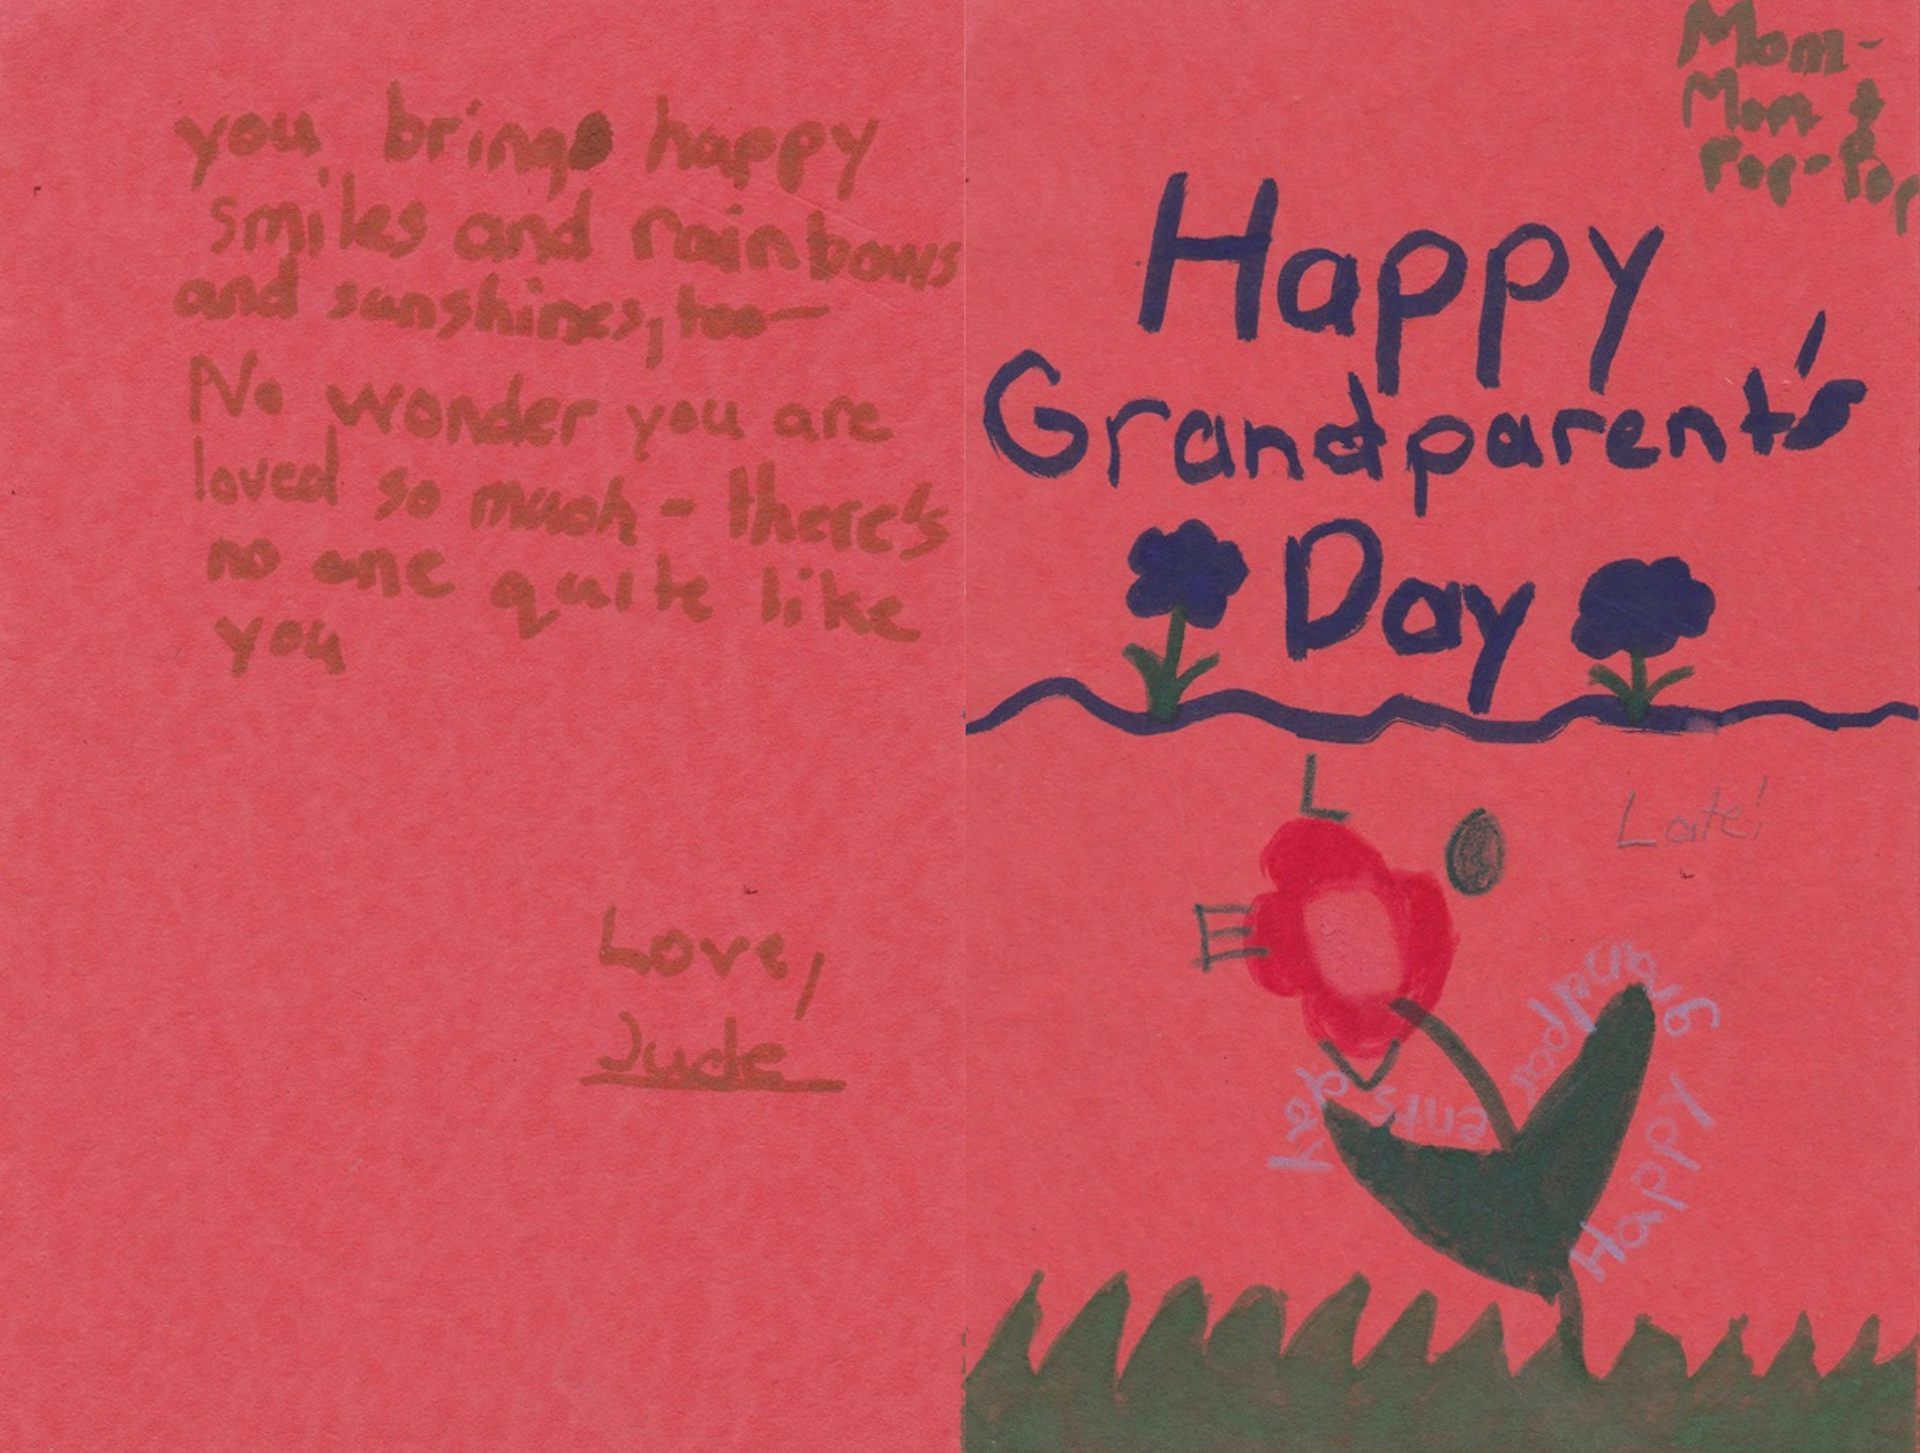 you bring happy
smiles and rainbows
and sunshines, too—
No wonder you are
loved so much - there's
no one quite like
you
Love,
Jude
Mom-
Mom &
Pop-Pop
Happy
Grandparent's
Day
Late!
L
O
V
E
Happy
Grandpar
ent's
day